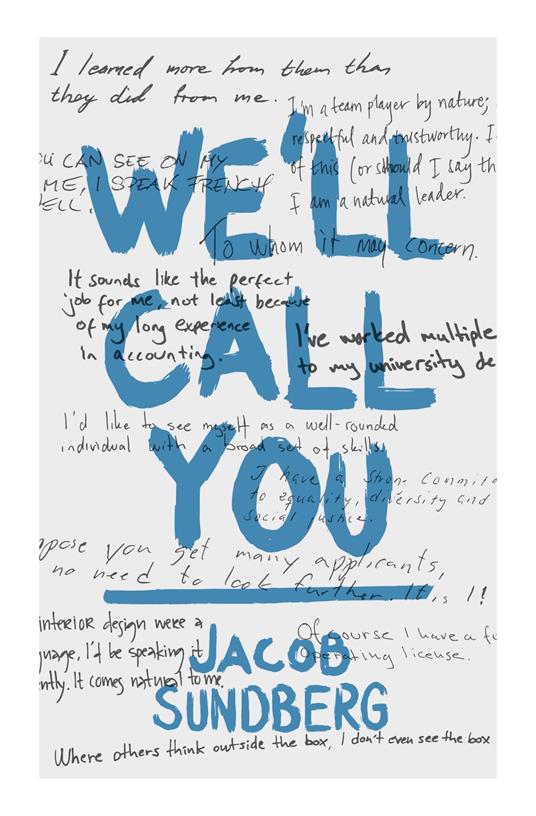 I learned more from them than
they did from me.
I'm a team player by nature;
respectful and trustworthy. I
of this (or should I say th
I am a natural leader.
CAN SEE ON MY
ME, I SPEAK FRENCH
ELL.
WE'LL
To whom it may concern.
It sounds like the perfect
job for me, not least because
of my long experience
in accounting.
CALL
I've worked multiple
to my university de
I'd like to see myself as a well-rounded
individual with a broad set of skills.
YOU
I have a strong commit
to equality, diversity and
social justice.
pose you get many applicants,
no need to look further. It's I!
interior design were a
guage, I'd be speaking it
ntly. It comes natural to me
Of course I have a fo
Operating license.
JACOB
SUNDBERG
Where others think outside the box, I don't even see the box